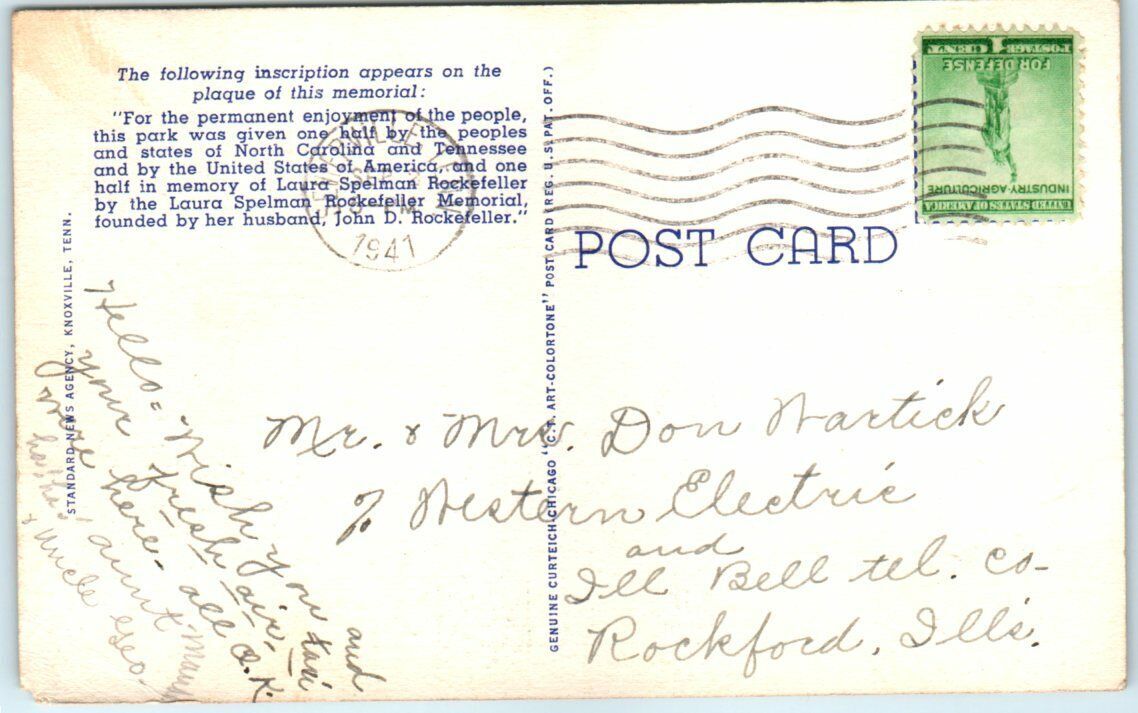 The following inscription appears on the
plaque of this memorial:
"For the permanent enjoyment of the people,
this park was given one half by the peoples
and states of North Carolina and Tennessee
and by the United States of America, and one
half in memory of Laura Spelman Rockefeller
by the Laura Spelman Rockefeller Memorial,
founded by her husband, John D. Rockefeller."
STANDARD NEWS AGENCY, KNOXVILLE, TENN.
GENUINE CURTEICH-CHICAGO "C.T. ART-COLORTONE" POST CARD (REG. U.S. PAT. OFF.)
POST CARD
1941
1
POSTAGE CENT
FOR DEFENSE
INDUSTRY-AGRICULTURE
UNITED STATES OF AMERICA
Hello = Wish you and
your fresh air, taxi
were here. all O.K.
ha, ha, aunt
& Uncle Geo.
Mr. & Mrs. Don Wartick
% Western Electric
and
Ill Bell tel. Co-
Rockford, Ills.